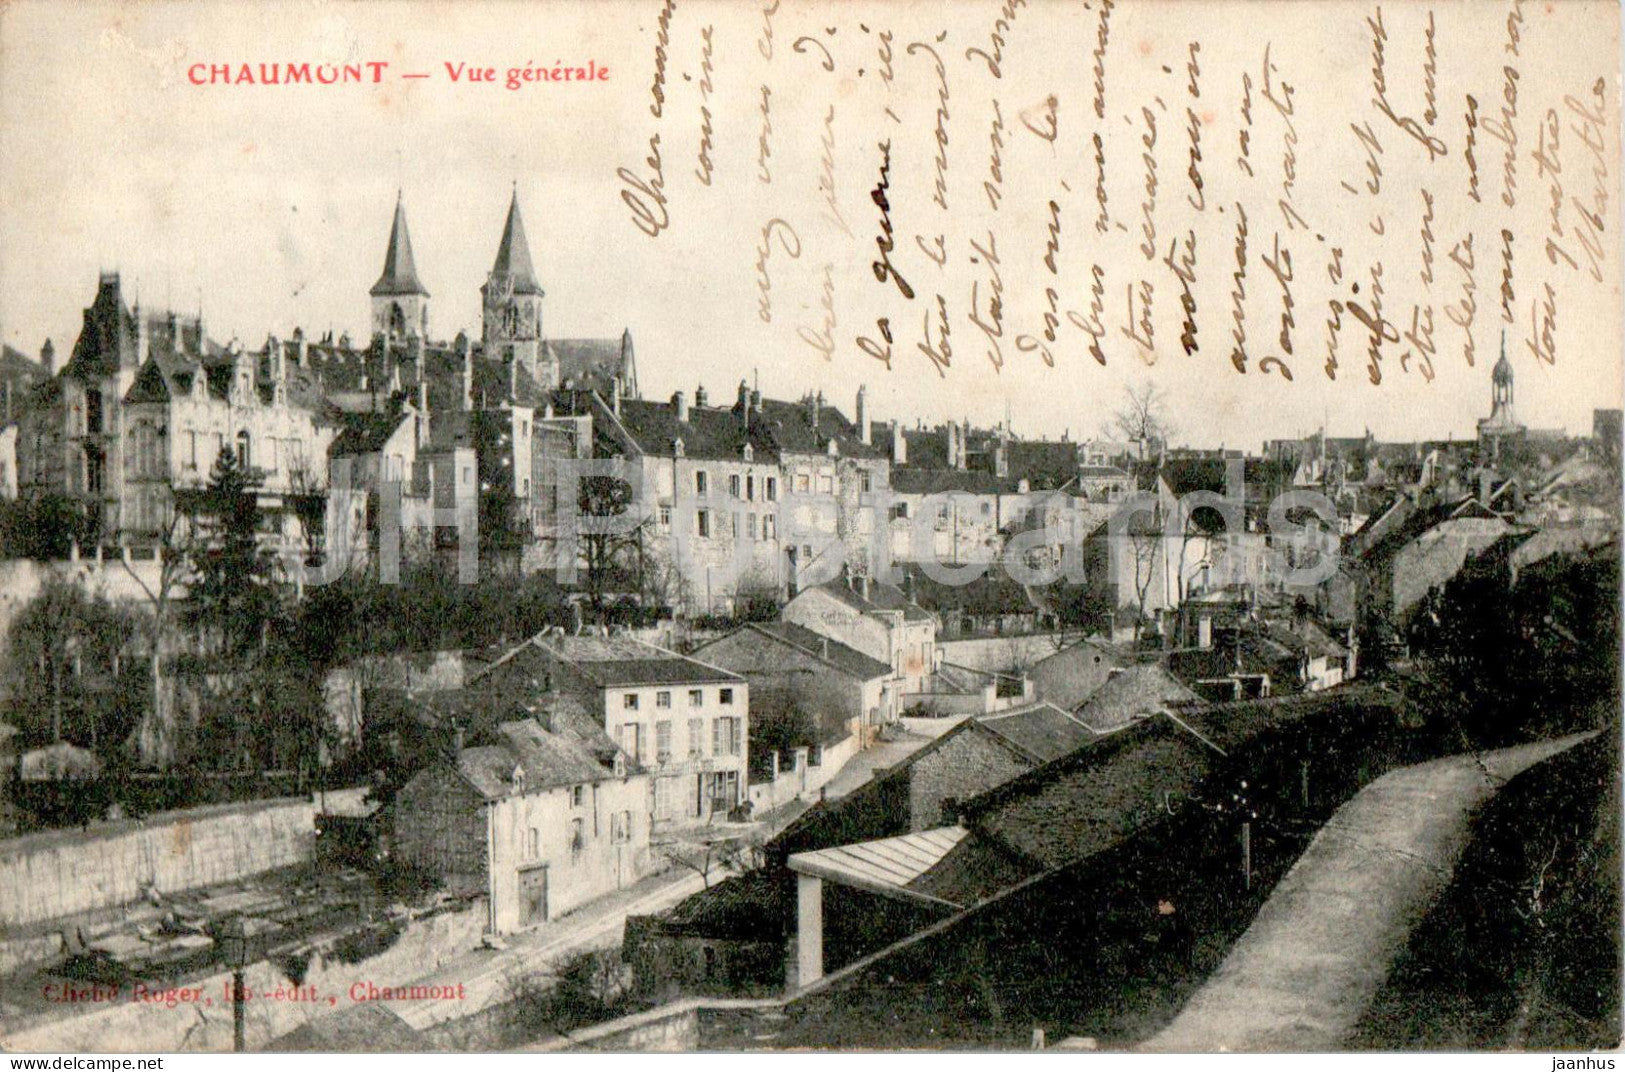 CHAUMONT — Vue générale
Cher cousin
cousine
avez vous eu
bien peur d.
la guerre, ici
tous le monde
etait sans dessus
dessous, les
obus nous aurait
tous écrasés,
notre cousin
aurai sans
doute parti
aussi
enfin c'est pour
être une fausse
alerte nous
vous embrassons
tous quatre
Marthe
Cliché Roger, lib.-édit., Chaumont
JH Postcards
www.delcampe.net
jaanhus